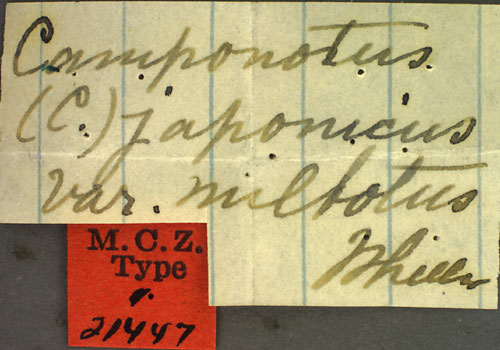 Camponotus
(C.) japonicus
var. miltotus
Wheeler
M.C.Z.
Type
1.
21447